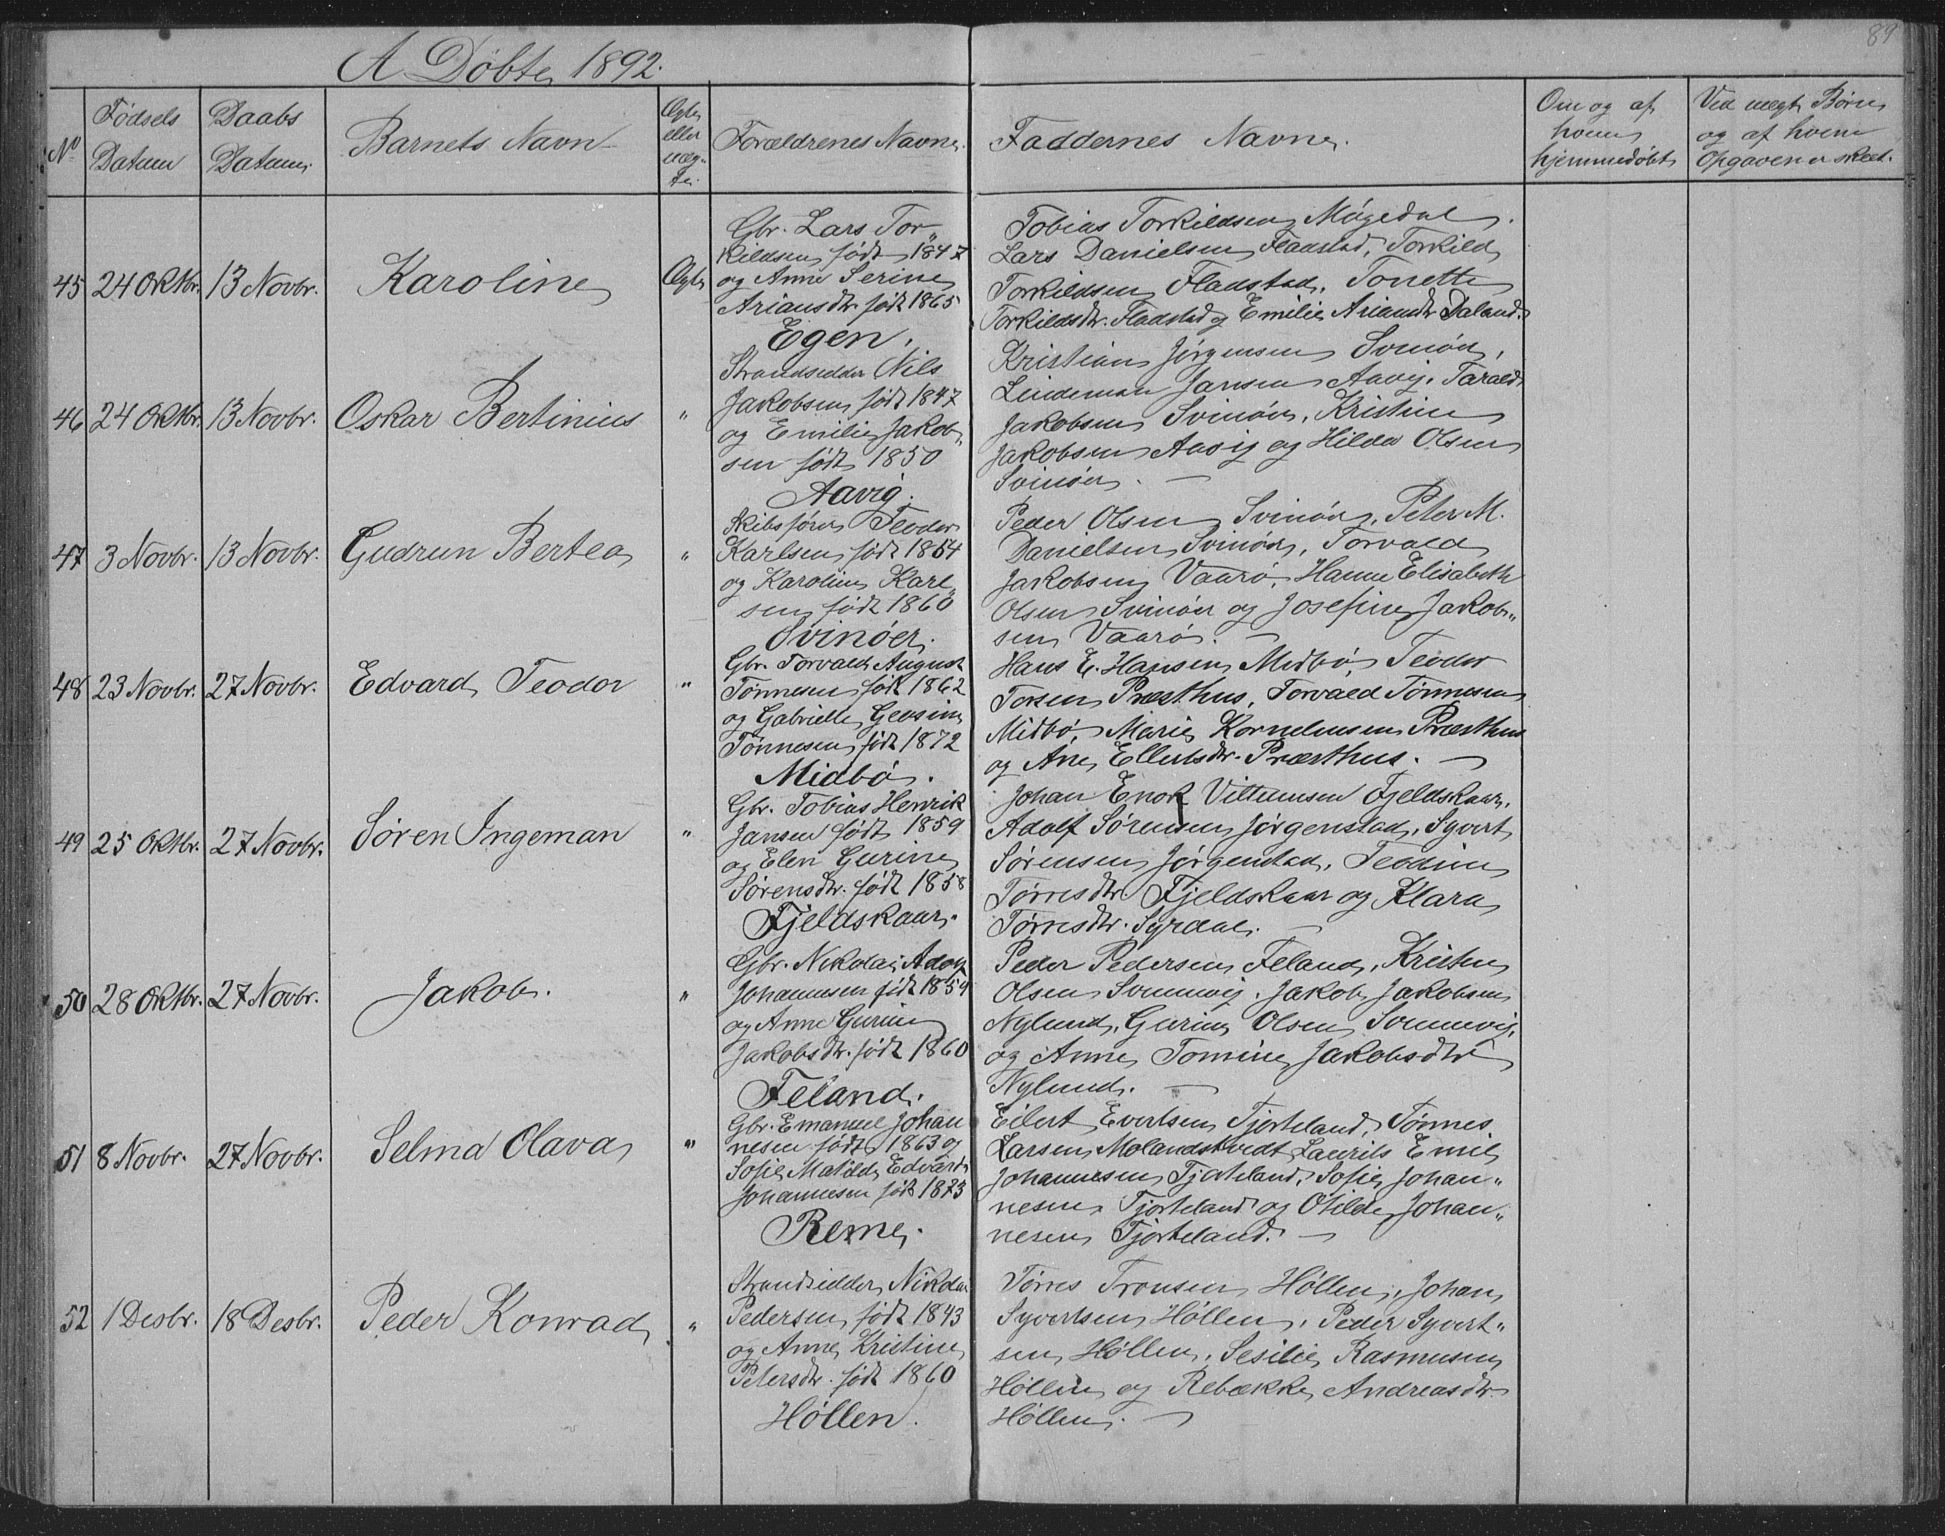 89
A Døbte 1892.
No
Fødsels Datum
Daabs Datum
Barnets Navn
Ægte eller uæg- te.
Forældrenes Navne.
Faddernes Navne.
Om og af hvem hjemmedøbt
Vid uægt. Børn og af hvem Opgaven er skeet.
45
24 Oktbr.
13 Novbr.
Karoline
Ægte
Gbr. Lars Tor-
kildsen født 1847
og Anne Serine
Ariansdtr. født 1865
Egen.
Tobias Torkildsen Møgedal.
Lars Danielsen Fladstad, Torkild
Torkildsen Fladstad, Tonette
Torkildsdtr. Fladstad og Emilie Ariansdtr Daland.
46
24 Oktbr.
13 Novbr.
Oskar Bertinius
"
Strandsidder Nils
Jakobsen født 1847
og Emilie Jakob„
sen født 1850
Aavig.
Kristian Jørgensen Svinør,
Lindeman Jansen Aavig. Tarald
Jakobsen Svinør, Kristine
Jakobsen Aavig og Hilda Olsen
Svinør. —
47
3 Novbr.
13 Novbr.
Gudrun Bertea
"
Skibsfører Teodor
Karlsen født 1864
og Karoline Karl„
sen født 1860
Svinøer.
Peder Olsen Svinør, Peter M.
Danielsen Svinør, Torvald
Jakobsen Vaarø, Hanne Elisabeth
Olsen Svinøer og Josefine Jakob„
sen Vaarø. —
48
23 Novbr.
27 Novbr.
Edvard Teodor
"
Gbr. Torvald August
Tønnesen født 1862
og Gabrielle Geosine
Tønnesen født 1872
Midbø.
Hans E. Hansen Midbø, Teodor
Torsen Præsthus, Torvald Tønnesen
Midbø, Marie Korneliussen Præsthus
og Ane Ellertsdtr. Præsthus. —
49
25 Oktbr.
27 Novbr.
Søren Ingeman
"
Gbr. Tobias Henrik
Jansen født 1859
og Elen Gurine
Sørensdtr. født 1858
Fjeldskaar.
Johan Enok Villumsen Fjeldskaar.
Adolf Sørensen Jørgenstad, Syvert
Sørensen Jørgenstad, Teodine
Tørresdtr Fjeldskaar og Klara
Tørresdtr. Syrdal. —
50
28 Oktbr.
27 Novbr.
Jakob.
"
Gbr. Nikolai Adolf
Johannesen født 1859
og Anne Gurine
Jakobsdtr. født 1860
Feland.
Peder Pedersen Feland, Kristen
Olsen Sommevig. Jakob Jakobsen
Nylund, Gurine Olsen Sommevig,
og Anne Tomine Jakobsdtr
Nylund. —
51
8 Novbr.
27 Novbr.
Selma Olava
"
Gbr. Emanuel Johan
nesen født 1863 og
Sofie Matilde Edvards
Johannesen født 1873
Reme.
Eilert Evertsen Tjorteland, Tønnes
Larsen Molandskvedt Laurits Emil
Johannesen Tjorteland, Sofie Johan„
nesen Tjorteland og Otilde Johan„
nesen Tjorteland. —
52
1 Desbr.
18 Desbr.
Peder Konrad
"
Strandsidder Nikolai
Pedersen født 1843
og Anne Kristine
Petersdtr. født 1860
Høllen.
Tørres Tronsen Høllen, Johan
Syvertsen Høllen, Peder Syvert„
sen Høllen, Sesilie Rasmusen
Høllen og Rebække Andreasdtr
Høllen. —